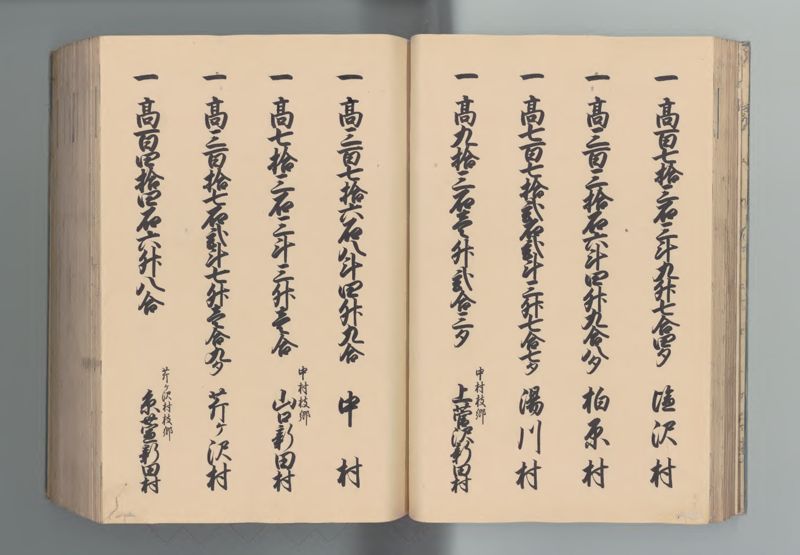 一高百七拾三石三斗九升七合四夕 塩沢村
一高三百三拾石六斗四升九合八夕 柏原村
一高七百七拾弐石弐斗三升七合七夕 湯川村
中村枝郷
一高九拾三石壱斗弐合三夕 上菅沢新田村
一高三百七拾六石八斗四升九合 中村
中村枝郷
一高七拾三石三斗三升壱合 山口新田村
一高三百拾七石弐斗七升壱合九夕 芹ヶ沢村
芹ヶ沢村枝郷
一高百四拾四石六升八合 新田村